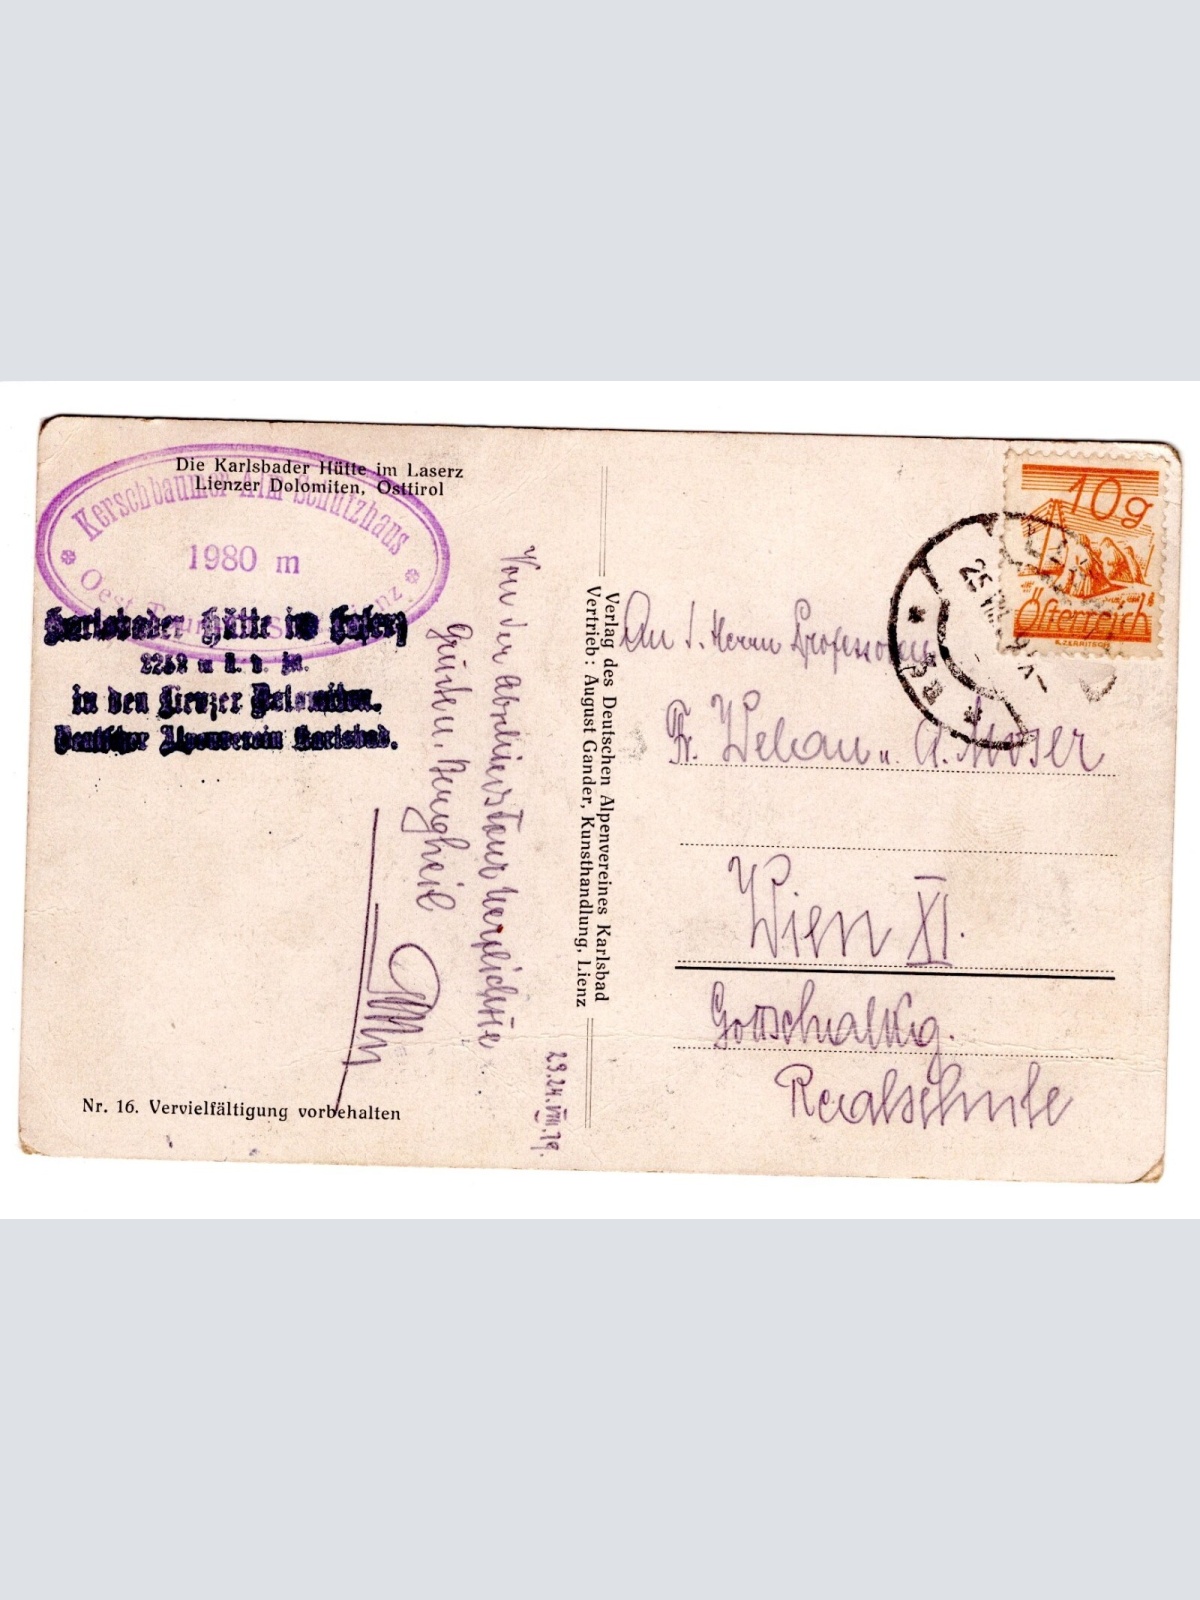 Die Karlsbader Hütte im Laserz
Lienzer Dolomiten, Osttirol
Kerschbaumer Alm Schutzhaus
1980 m
Oest.
Karlsbader Hütte im Laserz
in den Lienzer Dolomiten.
Deutscher Alpenverein Karlsbad.
Von der
Grüßen. Bergheil
29.24.VIII.19.
Nr. 16. Vervielfältigung vorbehalten
Verlag des Deutschen Alpenvereines Karlsbad
Vertrieb: August Gander, Kunsthandlung, Lienz
10g
Österreich
25
An d. Herrn Professoren
Fr. Weban u. A. Moser
Wien XI.
Gottschalkg.
Realschule